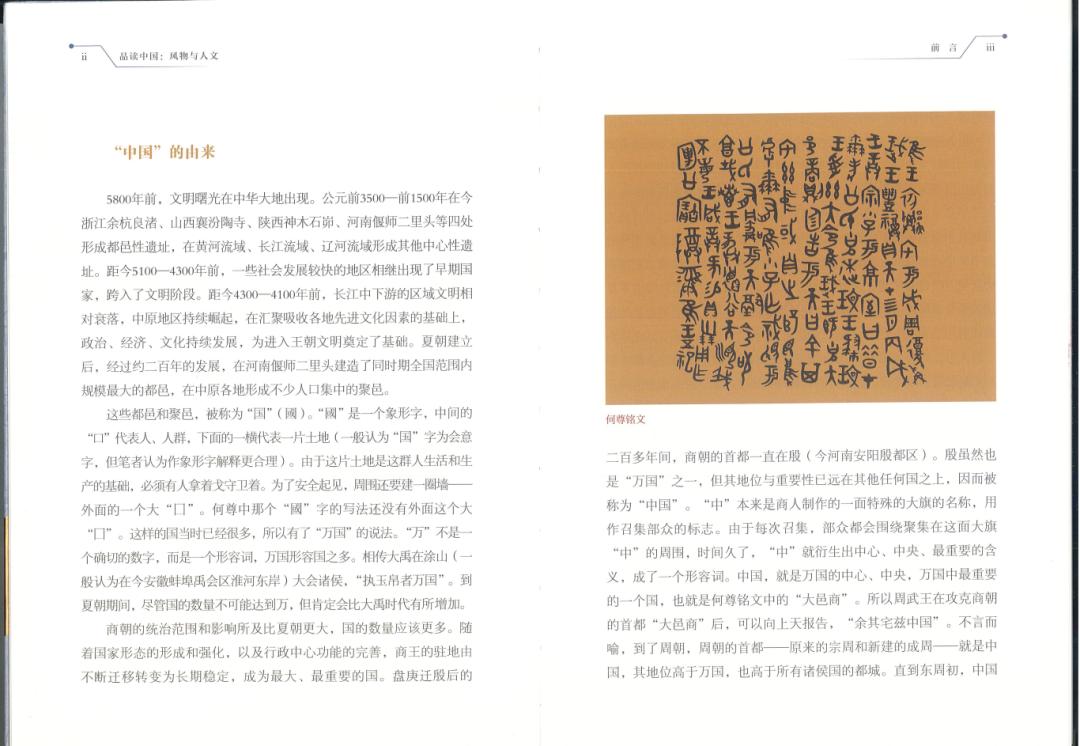 ii 品读中国：风物与人文
“中国”的由来
5800年前，文明曙光在中华大地出现。公元前3500—前1500年在今
浙江余杭良渚、山西襄汾陶寺、陕西神木石峁、河南偃师二里头等四处
形成都邑性遗址，在黄河流域、长江流域、辽河流域形成其他中心性遗
址。距今5100—4300年前，一些社会发展较快的地区相继出现了早期国
家，跨入了文明阶段。距今4300—4100年前，长江中下游的区域文明相
对衰落，中原地区持续崛起，在汇聚吸收各地先进文化因素的基础上，
政治、经济、文化持续发展，为进入王朝文明奠定了基础。夏朝建立
后，经过约二百年的发展，在河南偃师二里头建造了同时期全国范围内
规模最大的都邑，在中原各地形成不少人口集中的聚邑。
这些都邑和聚邑，被称为“国”（國）。“國”是一个象形字，中间的
“口”代表人、人群，下面的一横代表一片土地（一般认为“国”字为会意
字，但笔者认为作象形字解释更合理）。由于这片土地是这群人生活和生
产的基础，必须有人拿着戈守卫着。为了安全起见，周围还要建一圈墙——
外面的一个大“囗”。何尊中那个“國”字的写法还没有外面这个大
“囗”。这样的国当时已经很多，所以有了“万国”的说法。“万”不是一
个确切的数字，而是一个形容词，万国形容国之多。相传大禹在涂山（一
般认为在今安徽蚌埠禹会区淮河东岸）大会诸侯，“执玉帛者万国”。到
夏朝期间，尽管国的数量不可能达到万，但肯定会比大禹时代有所增加。
商朝的统治范围和影响所及比夏朝更大，国的数量应该更多。随
着国家形态的形成和强化，以及行政中心功能的完善，商王的驻地由
不断迁移转变为长期稳定，成为最大、最重要的国。盘庚迁殷后的
前 言 iii
何尊铭文
二百多年间，商朝的首都一直在殷（今河南安阳殷都区）。殷虽然也
是“万国”之一，但其地位与重要性已远在其他任何国之上，因而被
称为“中国”。“中”本来是商人制作的一面特殊的大旗的名称，用
作召集部众的标志。由于每次召集，部众都会围绕聚集在这面大旗
“中”的周围，时间久了，“中”就衍生出中心、中央、最重要的含
义，成了一个形容词。中国，就是万国的中心、中央，万国中最重要
的一个国，也就是何尊铭文中的“大邑商”。所以周武王在攻克商朝
的首都“大邑商”后，可以向上天报告，“余其宅兹中国”。不言而
喻，到了周朝，周朝的首都——原来的宗周和新建的成周——就是中
国，其地位高于万国，也高于所有诸侯国的都城。直到东周初，中国